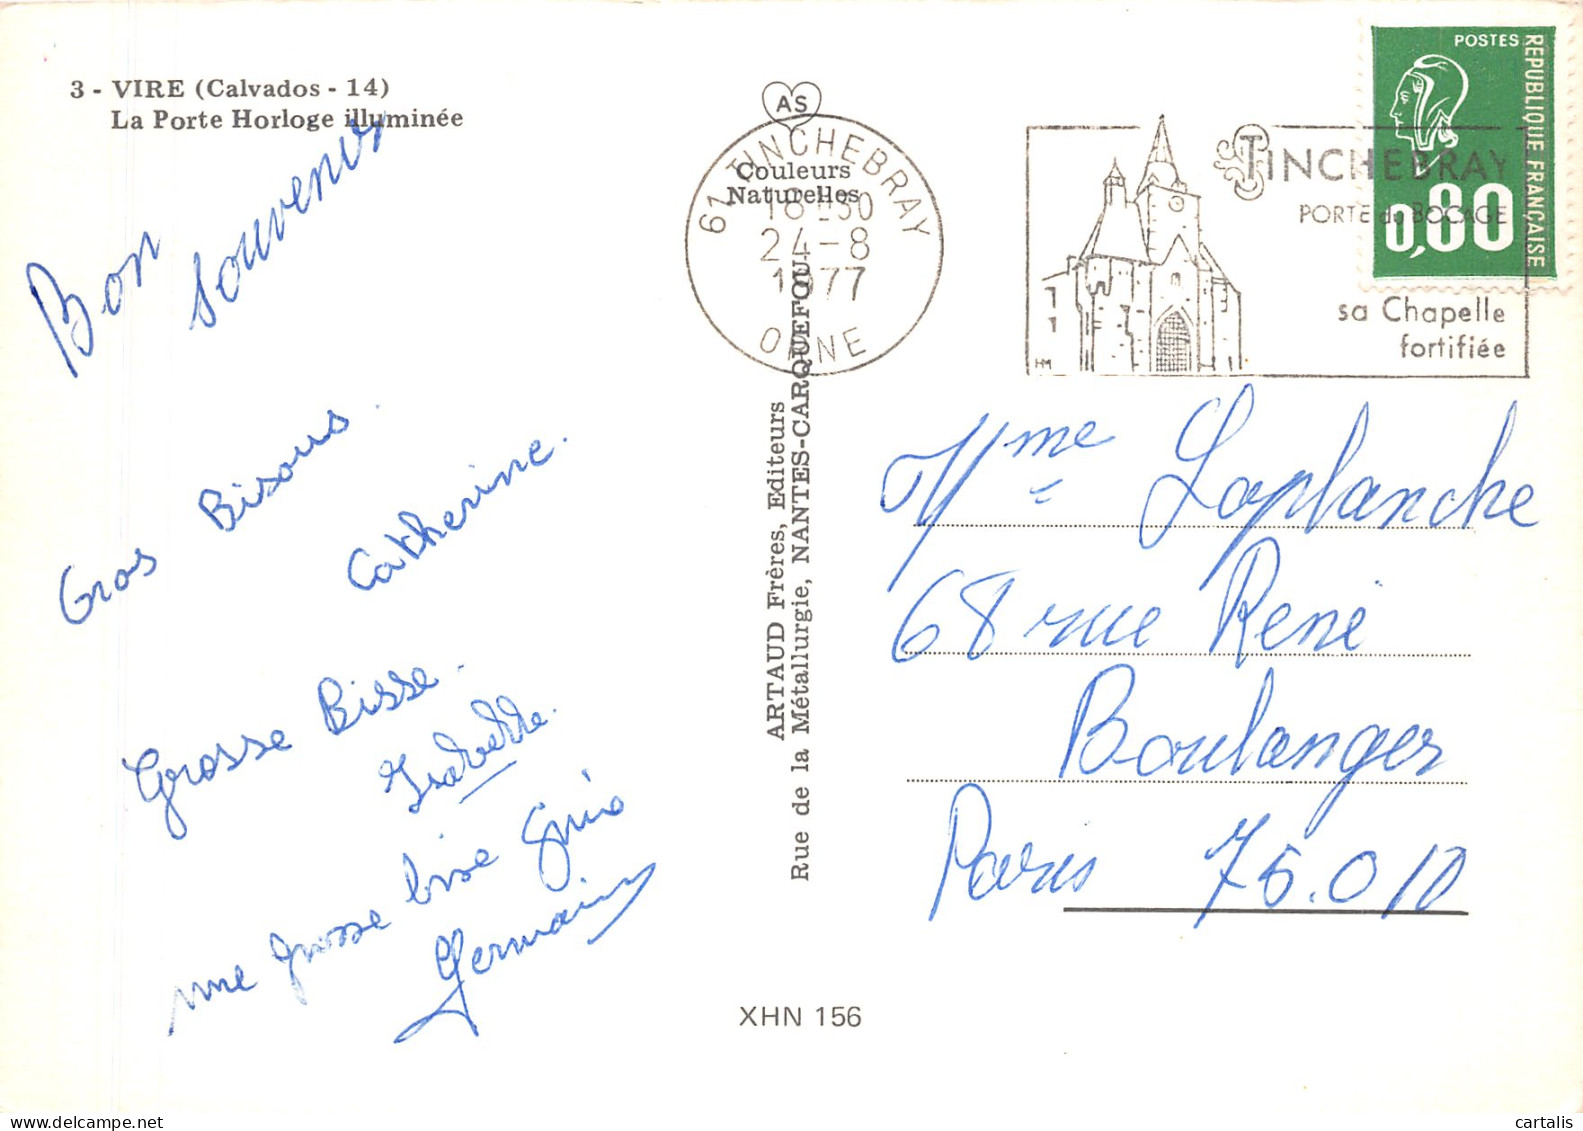 3 - VIRE (Calvados - 14)
La Porte Horloge illuminée
Bon
souvenir
Gros Bisous.
Catherine.
Grosse Bisse.
Isabelle.
une grosse bise
Germaine
AS
Couleurs
Naturelles
61 TINCHEBRAY
18-30
24-8
1977
ORNE
ARTAUD Frères, Editeurs
Rue de la Métallurgie, NANTES-CARQUEFOU
XHN 156
TINCHEBRAY
PORTE du BOCAGE
sa Chapelle
fortifiée
HM
POSTES
REPUBLIQUE FRANÇAISE
0,80
Mme Laplanche
68 rue René
Boulanger
Paris 75.010
cartalis